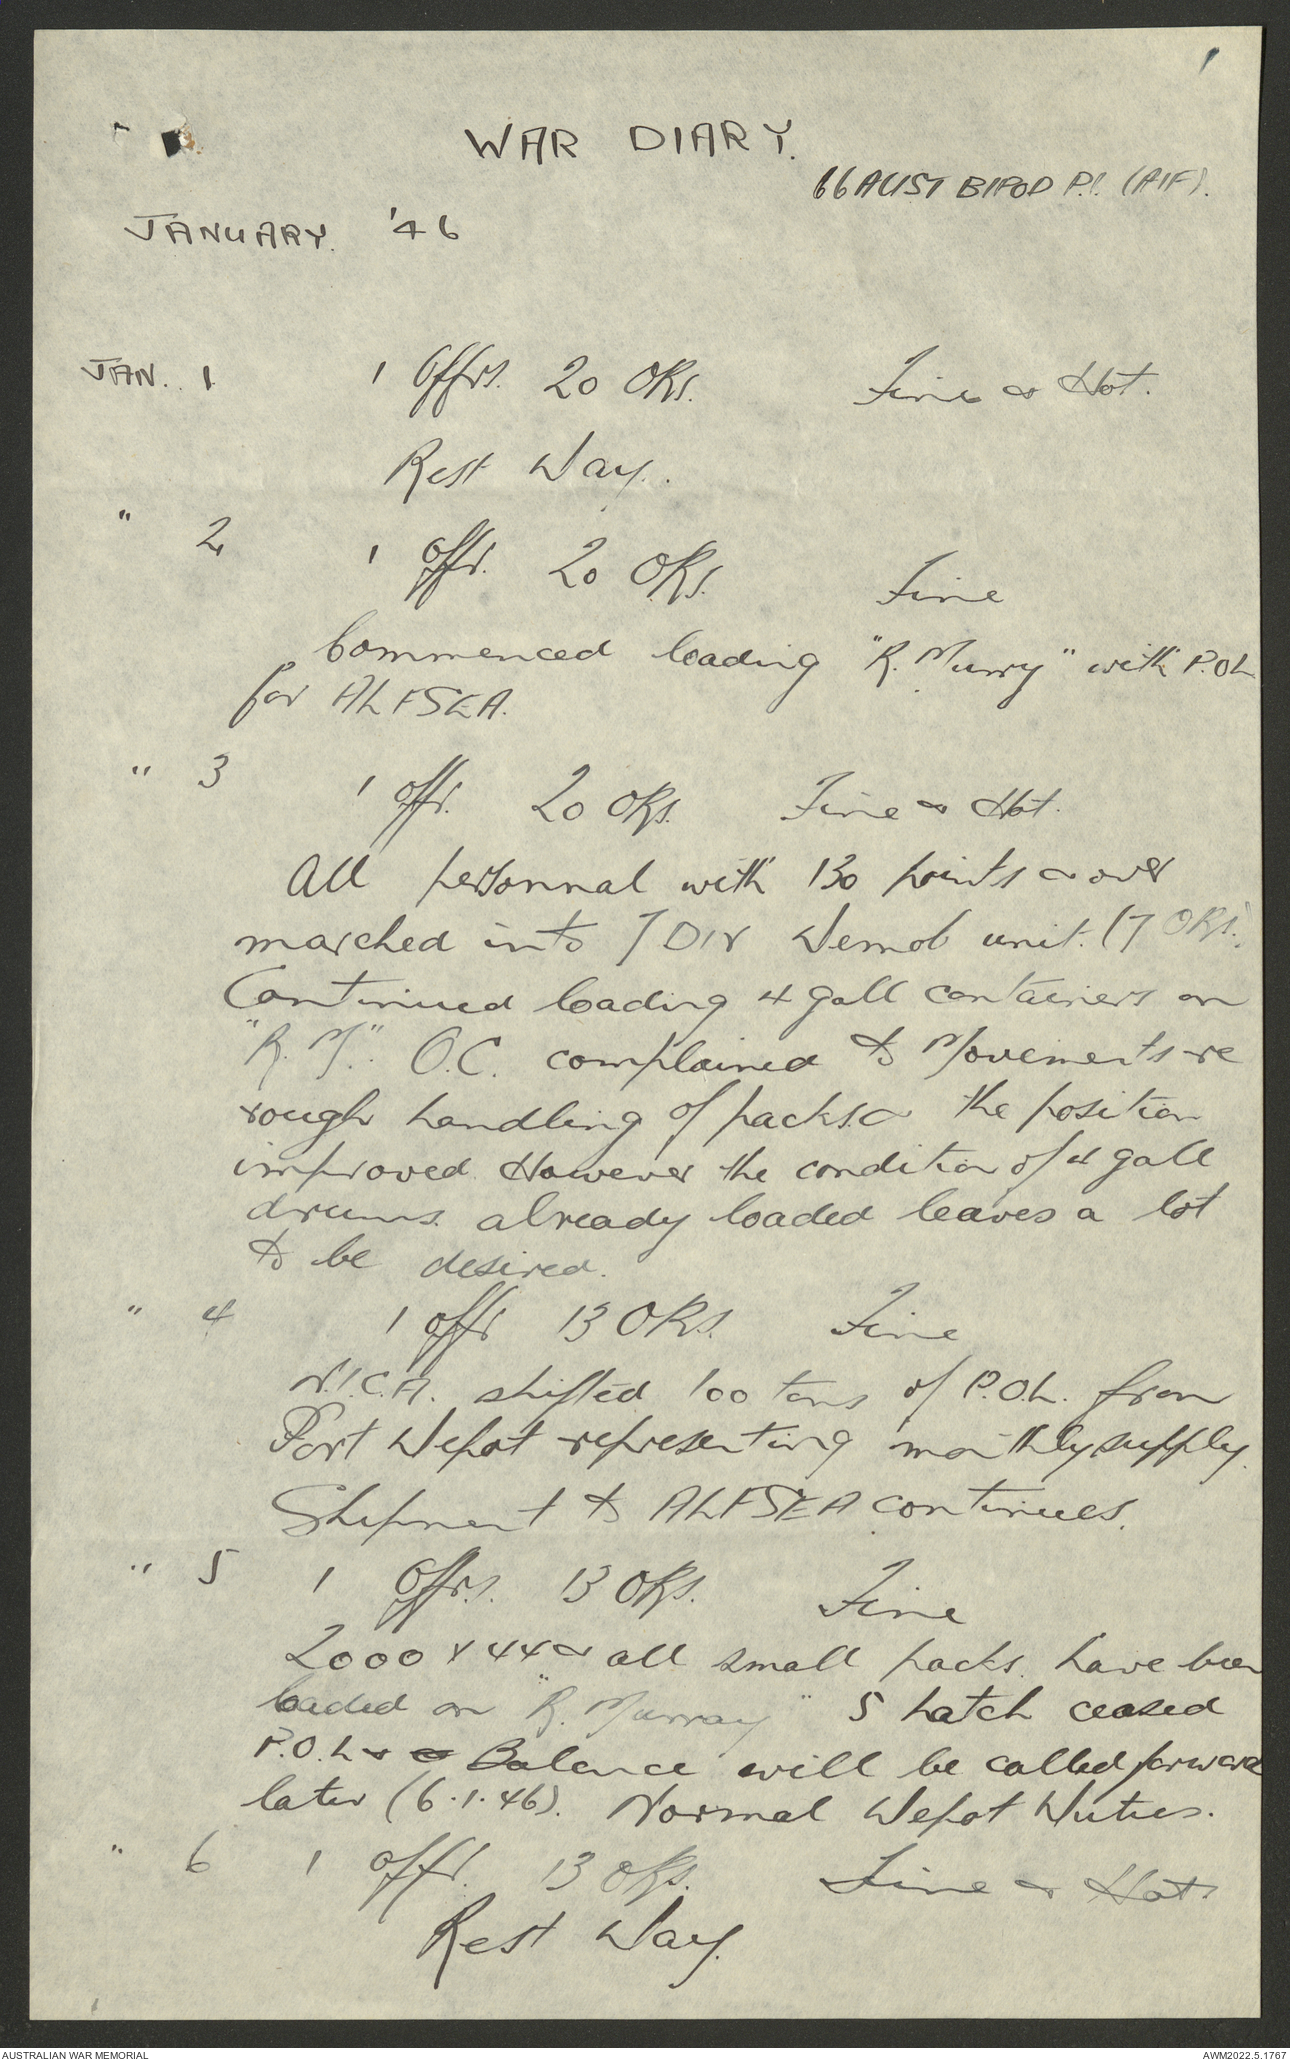 1
WAR DIARY.
66 AUST BIPOD Pl. (AIF).
JANUARY '46
JAN. 1 1 Offrs. 20 ORs. Fine & Hot.
Rest Day.
" 2 1 offr. 20 ORs. Fine
Commenced loading "R. Murry" with P.O.L
for ALFSEA.
" 3 1 offr. 20 ORs. Fine & Hot.
All personnal with 130 points & over
marched into 7 DIV Demob unit. (7 ORs.)
Continued loading 4 gall containers on
"R.M". O.C. complained to Movements re
rough handling of packs & the position
improved. However the condition of 4 gall
drums already loaded leaves a lot
to be desired.
" 4 1 offr 13 ORs. Fine
N.I.C.A. shifted 100 tons of P.O.L. from
Port Depot representing monthly supply.
Shipment to ALFSEA continues.
" 5 1 Offrs. 13 ORs. Fine
2000 x 44 & all small packs have been
loaded on "R. Murray" 5 hatch ceased
P.O.L & Balance will be called forward
later (6.1.46). Normal Depot Duties.
" 6 1 offr. 13 ORs. Fine & Hot.
Rest Day.
AUSTRALIAN WAR MEMORIAL
AWM2022.5.1767